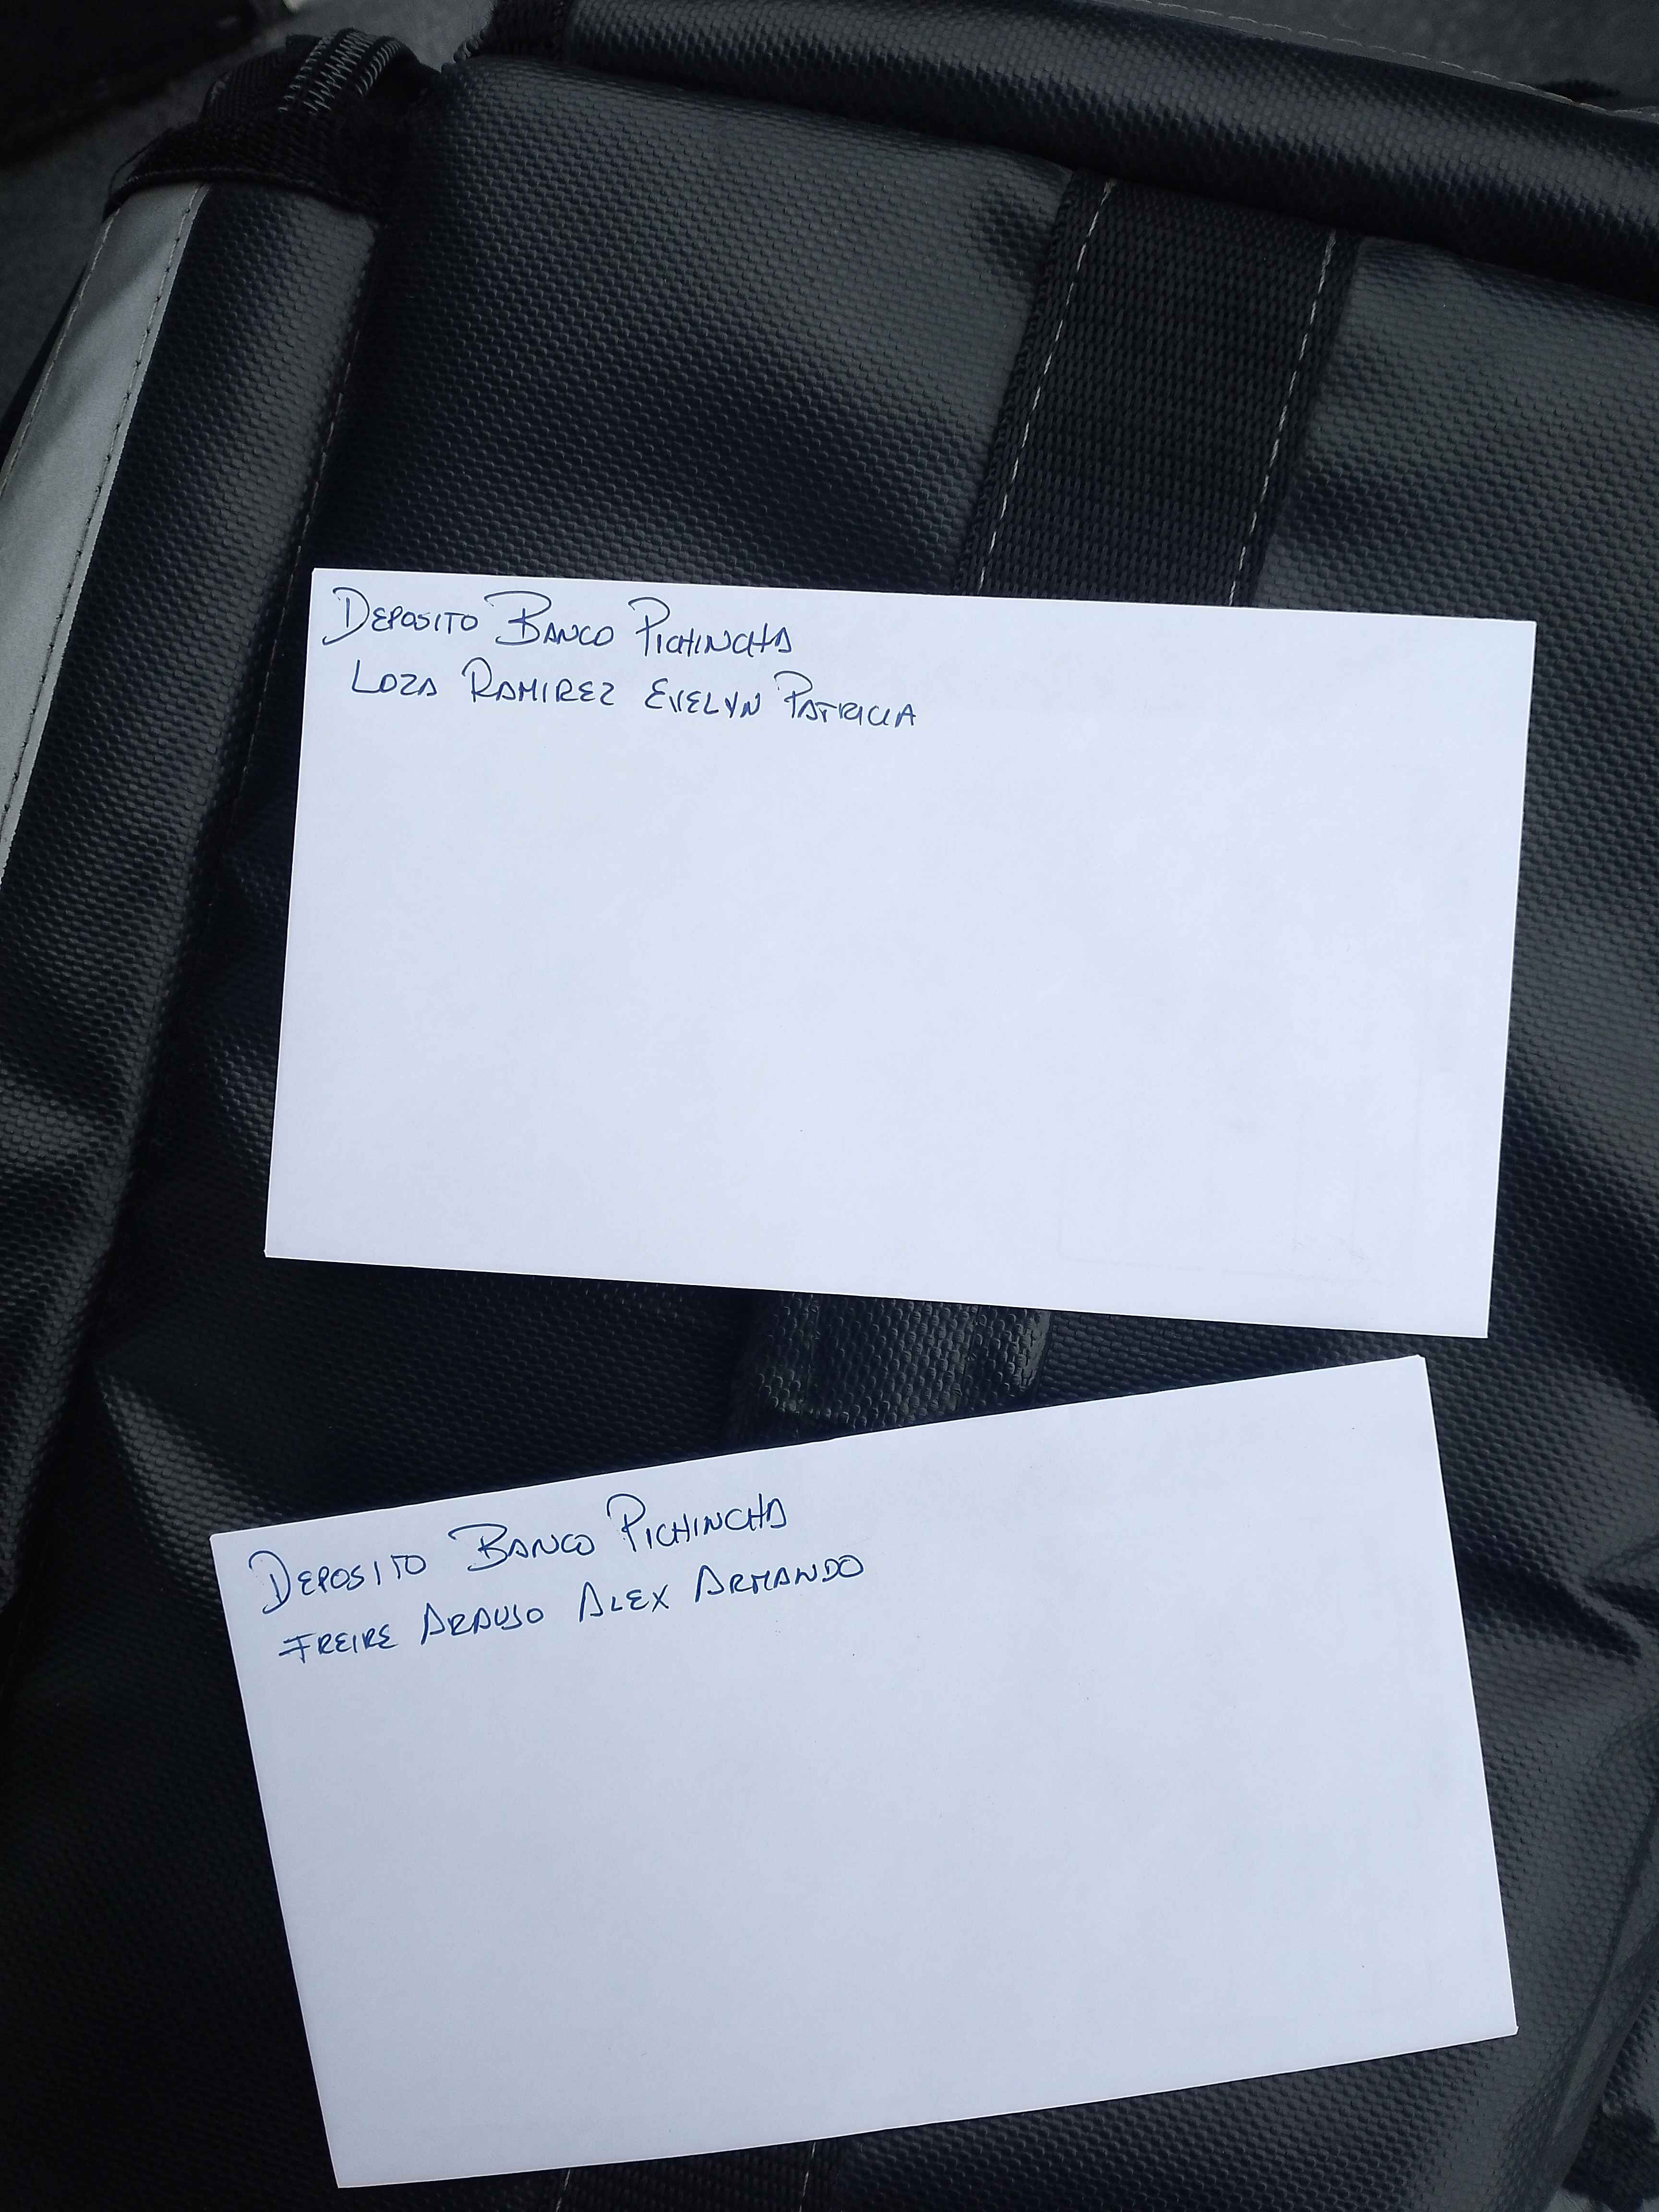 DEPOSITO BANCO PICHINCHA
LOZA RAMIREZ EVELYN PATRICIA
DEPOSITO BANCO PICHINCHA
FREIRE ARAUJO ALEX ARMANDO